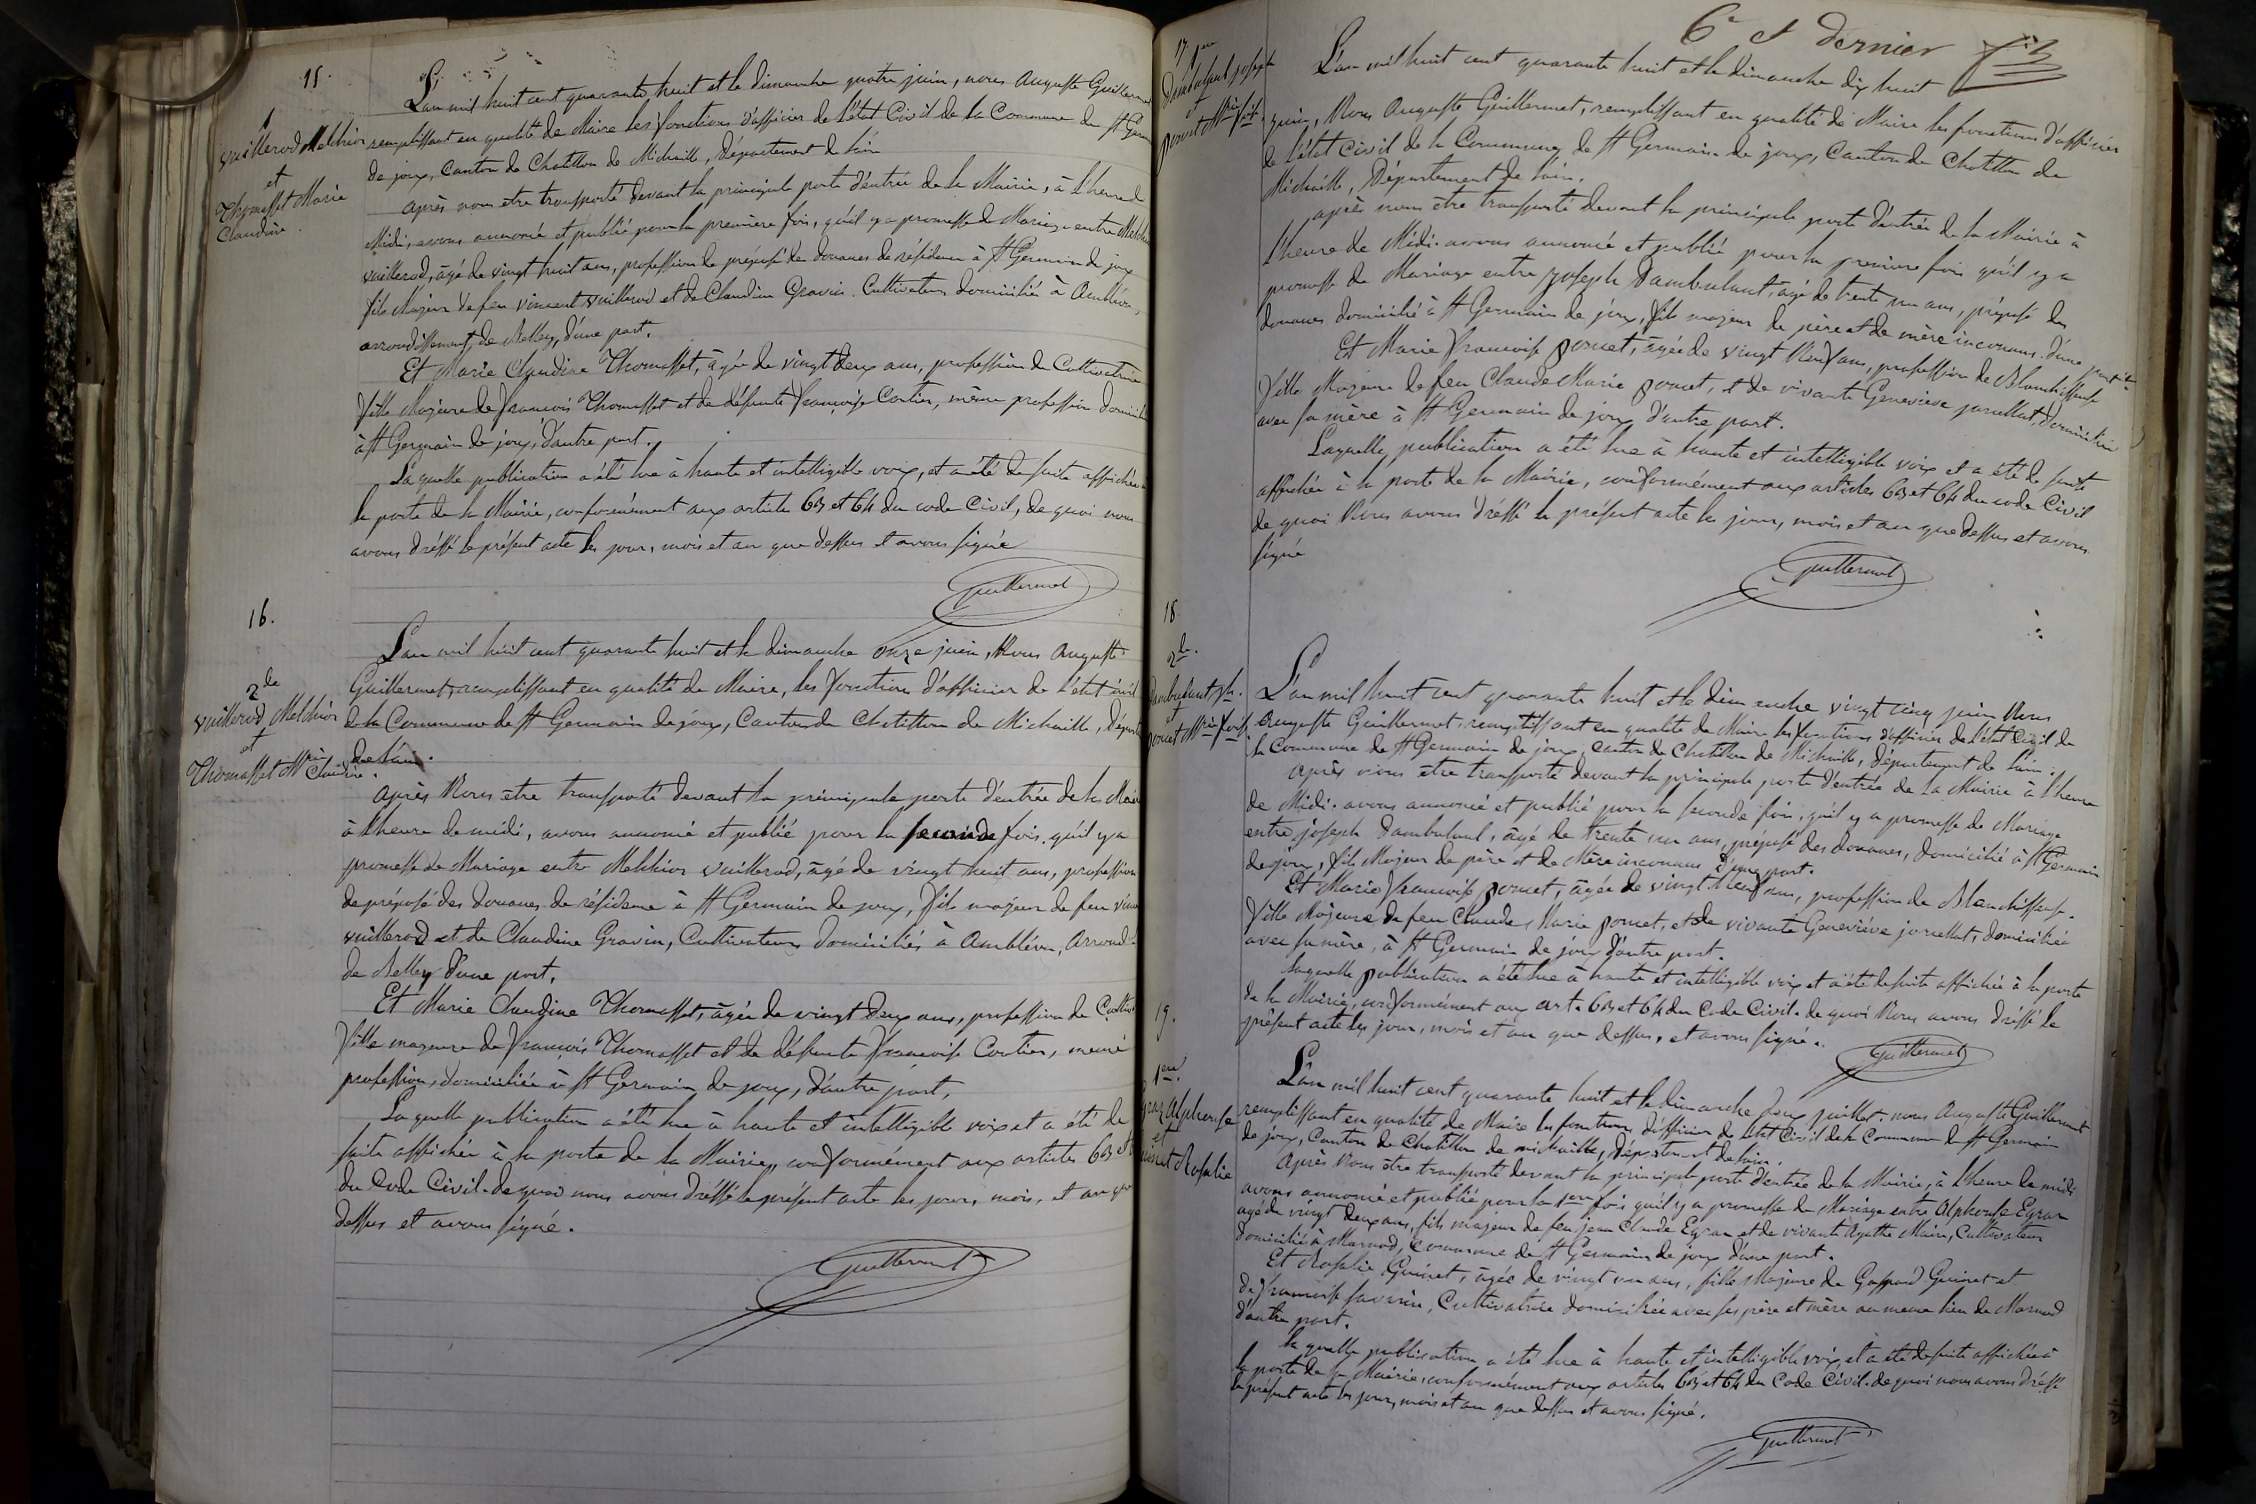 15.
1
Vuillerod Melchior
et
Thomasset Marie
Claudine.
L'an mil huit cent quarante huit et le dimanche quatre juin, nous Auguste Guillermet
remplissant en qualité de Maire les fonctions d'officier de l'état Civil de la Commune de St Germ
de joux, Canton de Chatillon de Michaille, Département de l'ain
après nous etre transporté devant la principale porte d'entrée de la Mairie, à l'heure de
Midi, avons annoncé et publié pour la première fois, qu'il y a promesse de Mariage entre Melchior
Vuillerod, âgé de vingt huit ans, profession de préposé des douanes de résidence à St Germain de joux
fils Majeur de feu Vincent Vuillerod et de Claudine Gravin. Cultivateurs domiciliés à Ambléon,
arrondissement de Belley, d'une part.
Et Marie Claudine Thomasset, âgée de vingt deux ans, profession de Cultivatrice
fille Majeure de françois Thomasset et de défunte françoise Contier, même profession domiciliée
à St Germain de joux, d'autre part.
La quelle publication a été lue à haute et intelligible voix, et a été de suite affichée à
la porte de la Mairie, conformément aux article 63 et 64 du code Civil, de quoi nous
avons dréssé le présent acte les jour, mois et an que dessus et avons signé
Guillermet
16.
2de
Vuillerod Melchior
et
Thomasset Mrie
Claudine.
L'an mil huit cent quarante huit et le dimanche onze juin, Nous Auguste
Guillermet, remplissant en qualité de Maire, les fonctions d'officier de l'état civil
de la Commune de St Germain de joux, Canton de Chatillon de Michaille, départ
de l'ain.
après Nous être transporté devant la principale porte d'entrée de la Mairie
à l'heure de midi, avons annoncé et publié pour la seconde fois, qu'il y a
promesse de Mariage entre Melchior Vuillerod, âgé de vingt huit ans, profession
de préposé des douanes de résidence à St Germain de joux, fils majeur de feu Vinc
Vuillerod et de Claudine Gravin, Cultivateurs domiciliés à Ambléon, Arrond.
de Belley d'une part.
Et Marie Claudine Thomasset, âgée de vingt deux ans, profession de Cultiv
fille majeure de françois Thomasset et de défunte françoise Contier, meme
profession, domiciliée à St Germain de joux, d'autre part.
La quelle publication a été lue à haute et intelligible voix et a été de
suite affichée à la porte de la Mairie, conformément aux articles 63 et
du Code Civil. de quoi nous avons dréssé le présent acte les jour, mois, et an que
dessus et avons signé.
Guillermet
6e et dernier ft
17.
1ere
Dambulant joseph
et
poncet Mrie fse.
L'an mil huit cent quarante huit et le dimanche dix huit
juin, Nous Auguste Guillermet, remplissant en qualité de Maire les fonctions d'officier
de l'état civil de la Commune de St Germain de joux, Canton de Chatillon de
Michaille, Département de l'ain.
après nous être transporté devant la principale porte d'entrée de la Mairie à
l'heure de Midi. avons annoncé et publié pour la première fois qu'il y a
promesse de Mariage entre joseph Dambulant, âgé de trente un ans, préposé des
douanes domicilié à St Germain de joux, fils majeur de père et de mère inconnus. d'une part.
Et Marie françoise poncet, âgée de vingt Neuf ans, profession de Blanchisseuse
fille Majeure de feu Claude Marie poncet, et de vivante Geneviève jornellat, domiciliée
avec sa mère à St Germain de joux d'autre part.
Laquelle publication a été lue à haute et intelligible voix et a été de suite
affichée à la porte de la Mairie, conformément aux articles 63 et 64 du code Civil
de quoi Nous avons dréssé le présent acte les jour, mois et an que dessus et avons
signé
Guillermet
18.
2de.
Dambulant jh.
et
poncet Mrie fse
L'an mil huit cent quarante huit et le dimanche vingt cinq juin Nous
Auguste Guillermet, remplissant en qualité de Maire les fonctions d'officier de l'état Civil de
la Commune de St Germain de joux, canton de Chatillon de Michaille, département de l'ain.
Après nous être transporté devant la principale porte d'entrée de la Mairie à l'heure
de Midi. avons annoncé et publié pour la seconde fois, qu'il y a promesse de Mariage
entre joseph Dambulant, âgé de trente un ans, préposé des douanes, domicilié à St Germain
de joux, fils Majeur de père et de Mère inconnus d'une part.
Et Marie françoise poncet, âgée de vingt Neuf ans, profession de Blanchisseuse.
fille Majeure de feu Claude Marie poncet, et de vivante Geneviève jornellat, domiciliée
avec sa mère, à St Germain de joux d'autre part.
Laquelle publication a été lue à haute et intelligible voix et a été de suite affichée à la porte
de la Mairie, conformément aux art. 63 et 64 du Code Civil. de quoi Nous avons dréssé le
présent acte les jour, mois et an que dessus, et avons signé.
Guillermet
19.
1ere.
Egraz Alphonse
et
Guinet Rosalie
L'an mil huit cent quarante huit et le dimanche deux juillet. nous Auguste Guillermet
remplissant en qualité de Maire les fonctions d'officier de l'état Civil de la Commune de St Germain
de joux, Canton de Chatillon de michaille, département de l'ain.
Après Nous être transporté devant la principale porte d'entrée de la Mairie, à l'heure de midi
avons annoncé et publié pour la 1ere fois qu'il y a promesse de Mariage entre Alphonse Egraz
agé de vingt deux ans, fils majeur de feu jean Claude Egraz et de vivante Agathe Maire, Cultivateur
domicilié à Marnod, commune de St Germain de joux d'une part.
Et Rosalie Guinet, âgée de vingt un ans, fille Majeure de Gaspard Guinet et
de françoise favarin, Cultivatrice domiciliée avec ses père et mère au meme lieu de Marnod
d'autre part.
la quelle publication a été lue à haute et intelligible voix et a été de suite affichée à
la porte de la Mairie, conformément aux articles 63 et 64 du Code Civil. de quoi nous avons dréssé
le présent acte les jour, mois et an que dessus et avons signé.
Guillermet